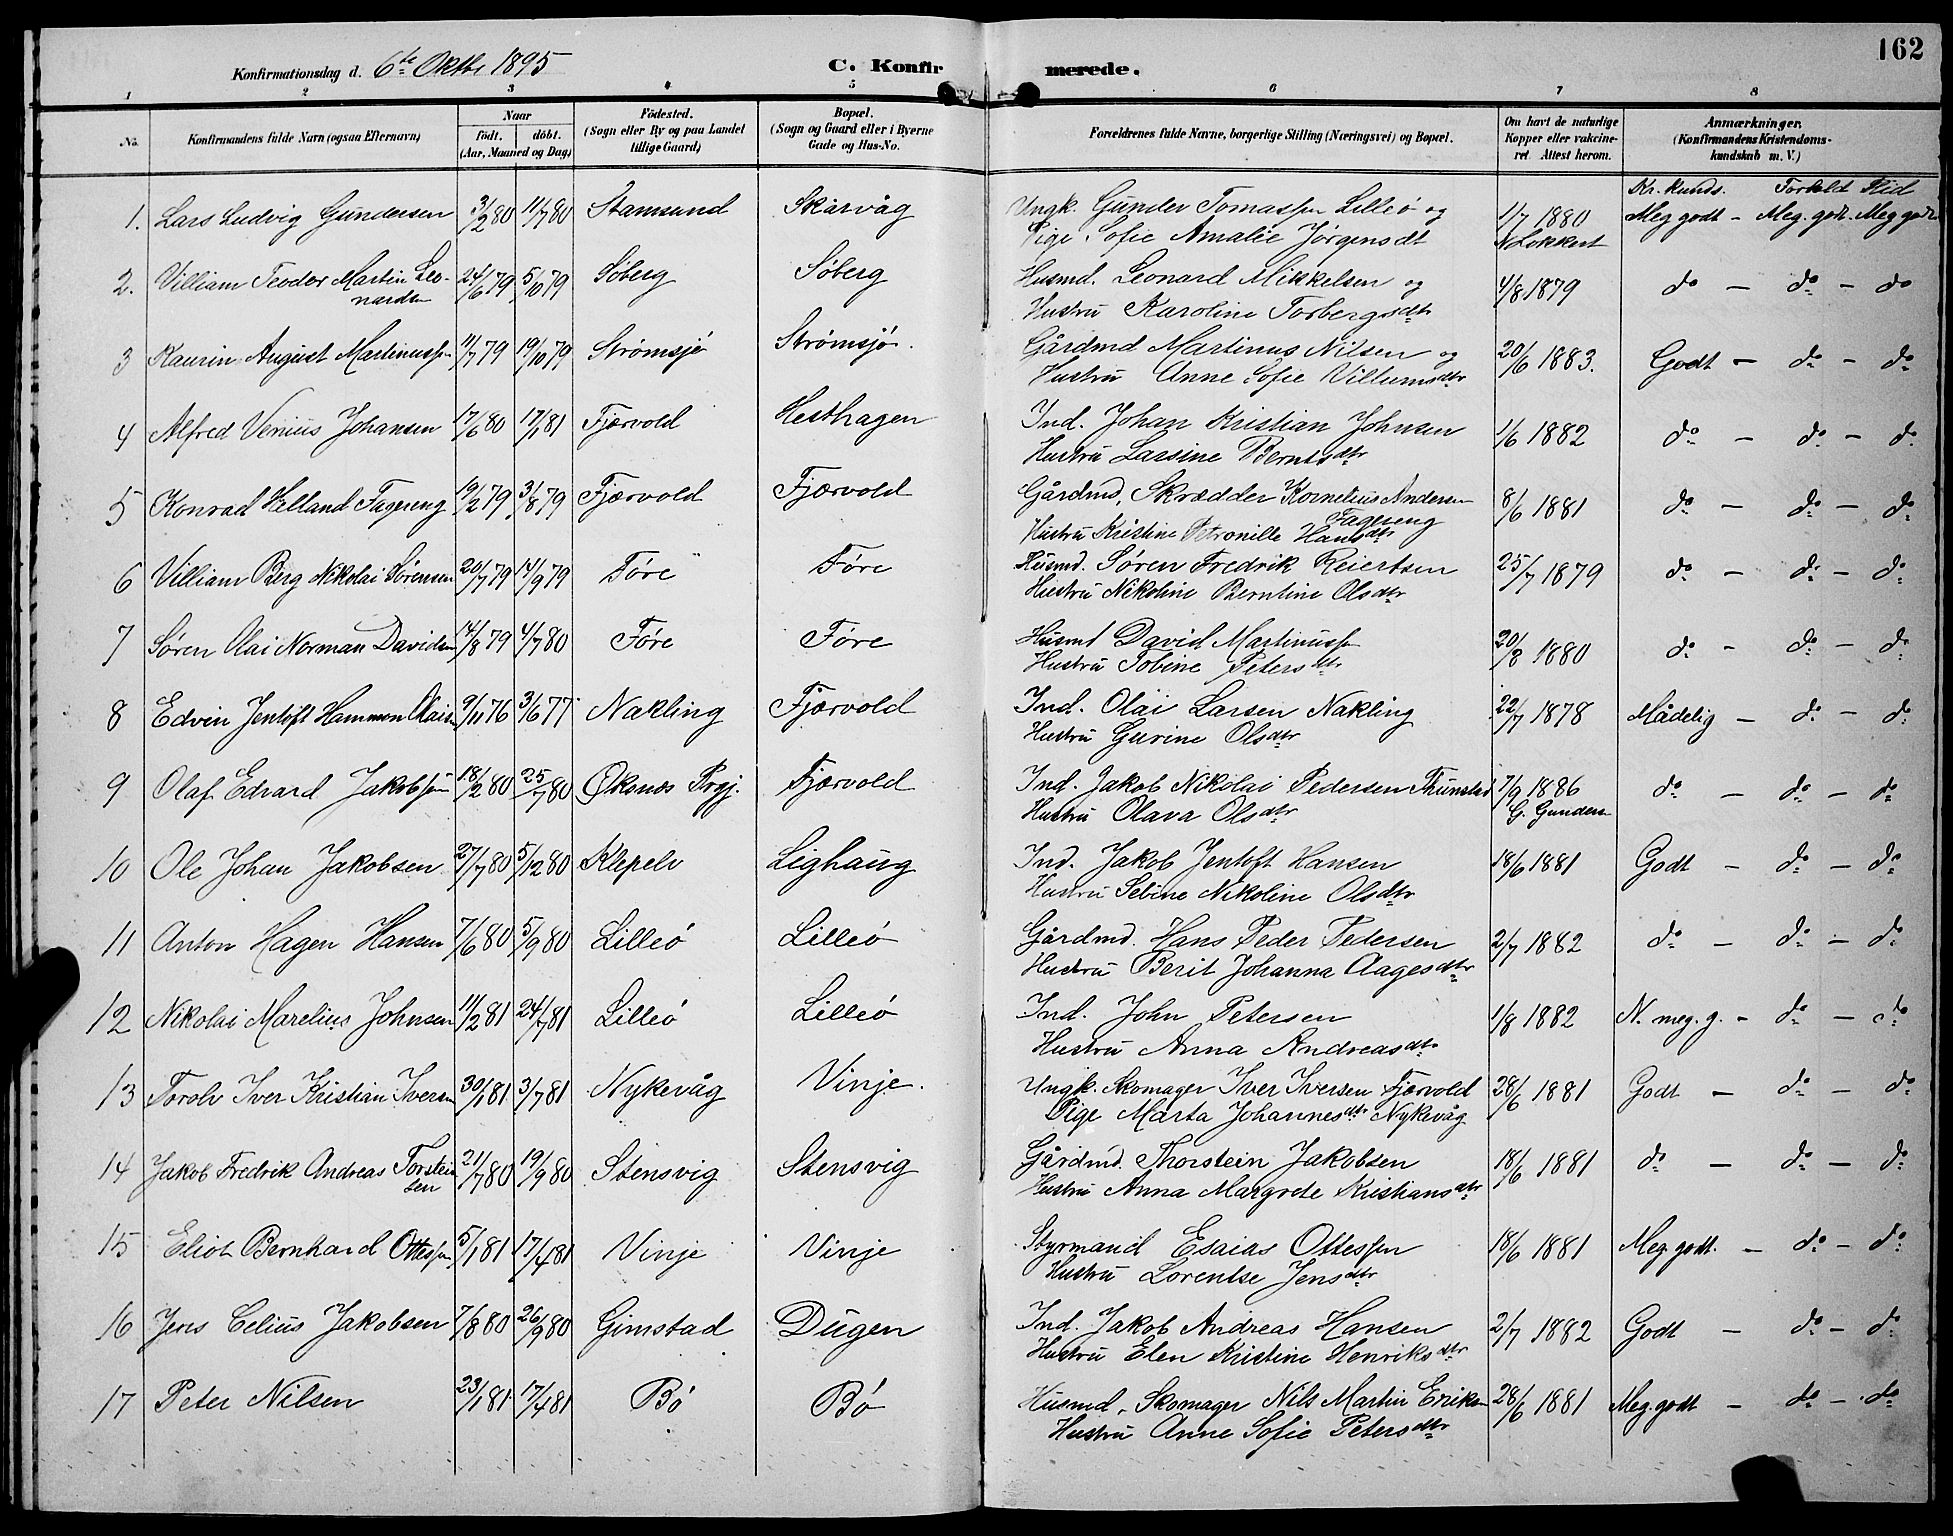 162
Konfirmationsdag d. 6te Oktbr 1895 C. Konfirmerede.
1 2 3 4 5 6 7 8
No. Konfirmandens fulde Navn (ogsaa Efternavn) Naar födt. döbt. (Aar, Maaned og Dag) Födested. (Sogn eller By og paa Landet tillige Gaard) Bopæl. (Sogn og Gaard eller i Byerne Gade og Hus-No. Forældrenes fulde Navne, borgerlige Stilling (Næringsvei) og Bopæl. Om havt de naturlige Kopper eller vakcineret Attest herom. Anmærkninger. (Konfirmandens Kristendomskundskab m. V.)
Kr. kunds. Forhold Flid
1. Lars Ludvig Gundersen 3/2 80 11/7 80 Stamsund Skårvåg Ungk. Gunder Tomassen Lilleö og 1/7 1880 Meg godt - Meg. godt. Meg godt
Pige Sofie Amalie Jørgensdt N Lokkert
2. Villiam Teodor Martin Leo- 24/6 79 5/10 79 Söberg Söberg Husmd. Leonard Mikkelsen og 4/8 1879 do - do - do
nardsen Hustru Karoline Torbergsdtr
3 Kaurin August Martinussen 11/7 79 19/10 79 Strömsjö Strömsjö. Gårdmd Martinus Nilsen og 20/6 1883. Godt - do - do
Hustru Anne Sofie Villumsdtr
4 Alfred Venius Johansen 17/6 80 17/1 81 Fjærvold Hesthagen Ind. Johan Kristian Johnsen 1/6 1882 do - do - do
Hustru Larsine Berntsdtr
5 Konrad Helland Fagereng 19/2 79 3/8 79 Fjærvold Fjærvold Gårdmd, Skrædder Kornelius Andersen 8/6 1881 do - do - do
Fagereng
Hustru Kristine Petronille Hansdtr
6 Villiam Berg Nikolai Sörensen 20/7 79 14/9 79 Före Före Husmd. Sören Fredrik Reiertsen 25/7 1879 do - do - do
Hustru Nikoline Berntine Olsdtr
7 Sören Olai Norman Davidsen 14/8 79 4/7 80 Före Före Husmd David Martinussen 20/8 1880 do - do - do
Hustru Tobine Petersdtr
8 Edvin Jentoft Hammon Olaisen 9/11 76 3/6 77 Nakling Fjærvold Ind. Olai Larsen Nakling 22/7 1878 Mådelig - do - do
Hustru Gurine Olsdtr
9 Olaf Edvard Jakobsen 18/2 80 25/7 80 Öksnes Prgj. Fjærvold Ind. Jakob Nikolai Pedersen Thunstad 7/9 1886 do - do - do
Hustru Olava Olsdtr G. Gundersen
10 Ole Johan Jakobsen 27/7 80 5/12 80 Klepelv Lighaug Ind. Jakob Jentoft Hansen 18/6 1881 Godt - do - do
Hustru Sebine Nikoline Olsdtr
11 Anton Hagen Hansen 7/6 80 5/9 80 Lilleö Lilleö Gårdmd. Hans Peder Pedersen 2/7 1882 do - do - do
Hustru Berit Johanna Aagesdtr
12 Nikolai Marelius Johnsen 11/2 81 24/7 81 Lilleö Lilleö Ind. John Petersen 1/8 1882 N. meg. g. - do - do
Hustru Anna Andreasdtr
13 Torolv Iver Kristian Iversen 30/1 81 3/7 81 Nykevåg Vinje. Ungk. Skomager Iver Iversen Fjærvold 28/6 1881 Godt - do - do
Pige Marta Johannesdtr Nykevåg
14 Jakob Fredrik Andreas Torstein 21/7 80 19/9 80 Stensvig Stensvig Gårdmd. Thorstein Jakobsen 18/6 1881 do - do - do
sen Hustru Anna Margrete Kristiansdtr
15 Eliot Bernhard Ottessen 5/1 81 17/4 81 Vinje Vinje Styrmand Esaias Ottessen 18/6 1881 Meg godt. - do - do
Hustru Lorentse Jensdtr
16 Jens Celius Jakobsen 7/8 80 26/9 80 Gimstad Dugen Ind. Jakob Andreas Hansen 2/7 1882 Godt - do - do
Hustru Elen Kristine Henriksdtr
17 Peter Nilsen 23/1 81 17/4 81 Bö Bö Husmd, Skomager Nils Martin Eriksen 28/6 1881 Meg.godt - do - do
Hustru Anne Sofie Petersdtr